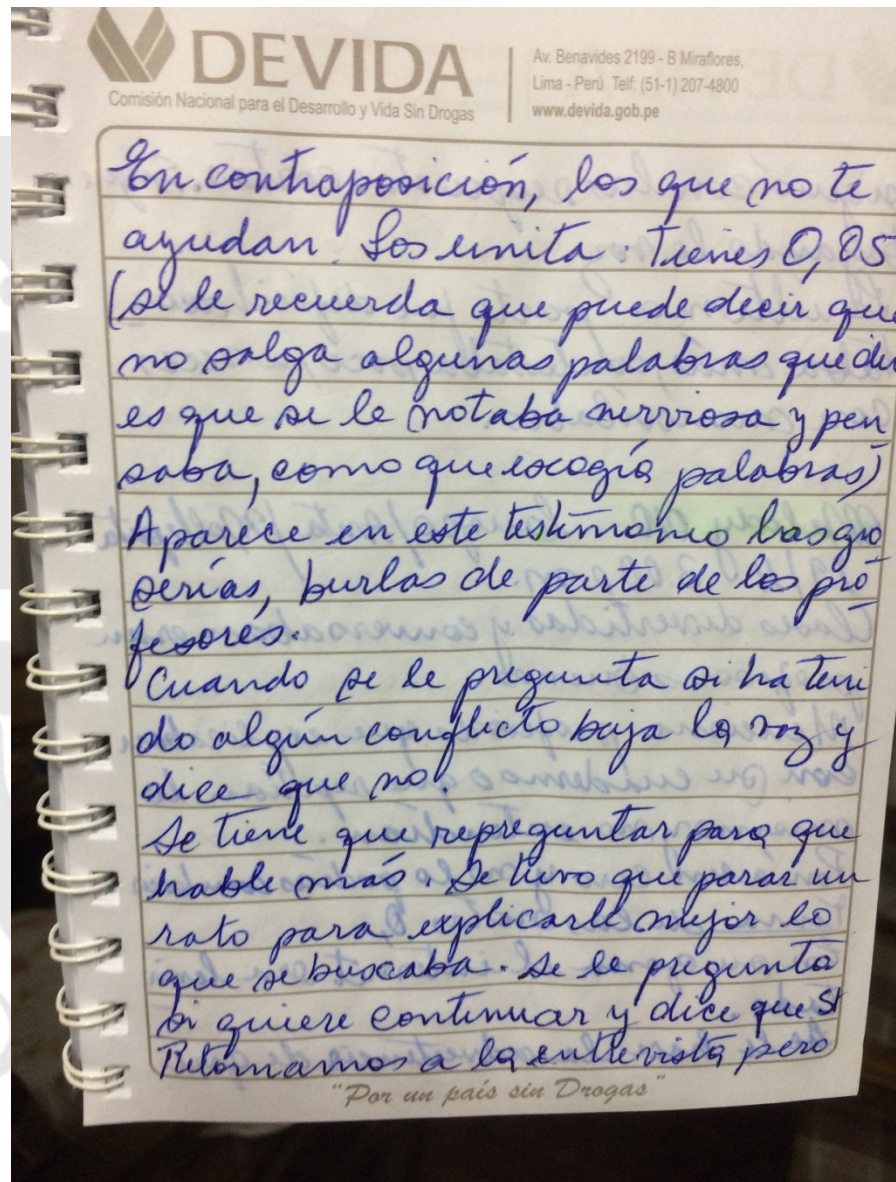 DEVIDA
Comisión Nacional para el Desarrollo y Vida Sin Drogas
Av. Benavides 2199 - B Miraflores,
Lima - Perú Telf: (51-1) 207-4800
www.devida.gob.pe
En contraposición, los que no te
ayudan. Los imita. Tienes 0,05
(se le recuerda que puede decir que
no salga algunas palabras que di
es que se le notaba nerviosa y pen
saba, como que escogía palabras)
Aparece en este testimonio las gro
serías, burlas de parte de los pro
fesores.
Cuando se le pregunta si ha teni
do algún conflicto baja la voz y
dice que no.
Se tiene que repreguntar para que
hable más. Se tuvo que parar un
rato para explicarle mejor lo
que se buscaba. Se le pregunta
si quiere continuar y dice que SI
Retornamos a la entrevista pero
"Por un país sin Drogas"